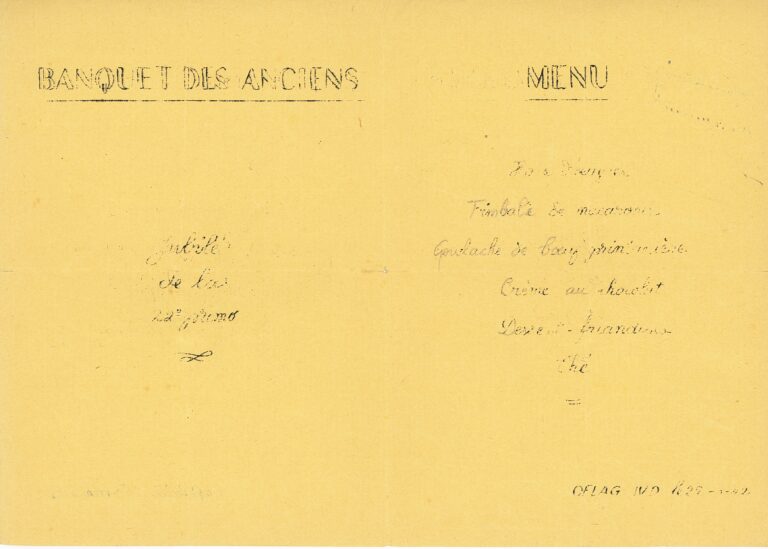 BANQUET DES ANCIENS
Jubilé
de la
22e promo
MENU
Timbale de macaronis
Goulache de bœuf printanière
Crème au chocolat
Dessert - friandises
Thé
OFLAG IV D le 29